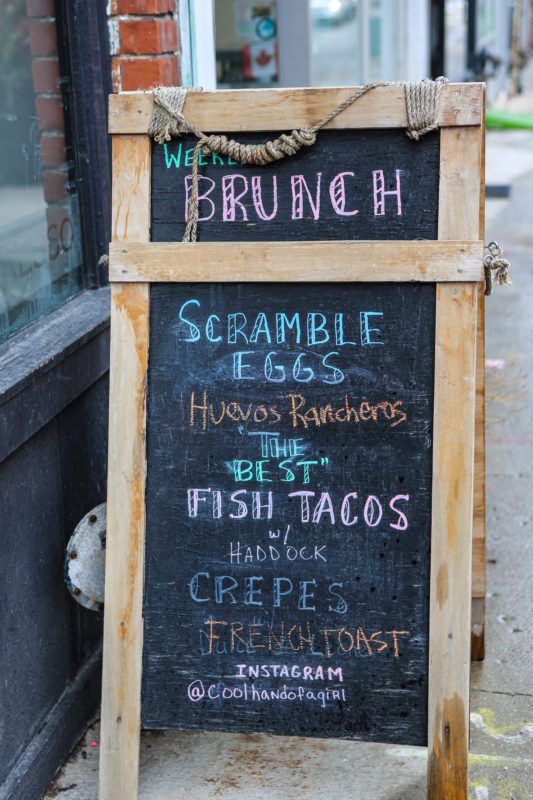 BRUNCH
SCRAMBLE
EGGS
Huevos Rancheros
"THE
BEST"
FISH TACOS
w/
HADDOCK
CREPES
FRENCH TOAST
INSTAGRAM
@Coolhandofagirl